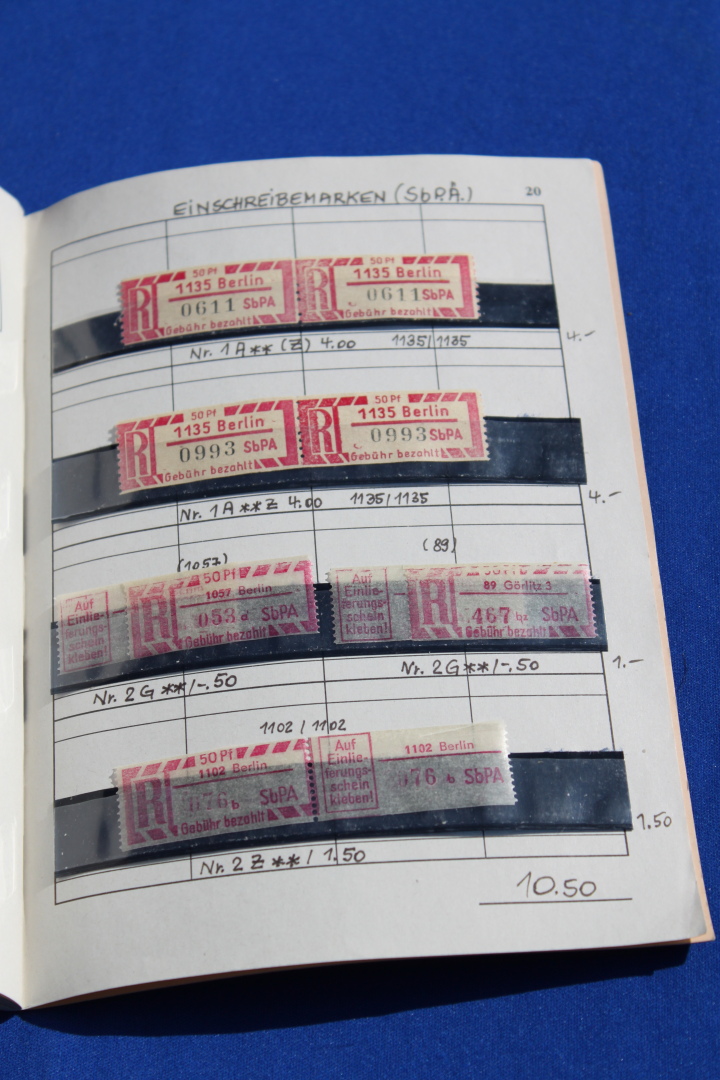 EINSCHREIBEMARKEN (SbPÄ.)
20
50 Pf
1135 Berlin
R
0611 SbPA
Gebühr bezahlt
50 Pf
1135 Berlin
R
0611 SbPA
Gebühr bezahlt
4.-
Nr. 1 A ** (Z) 4.00 1135/1135
50 Pf
1135 Berlin
R
0993 SbPA
Gebühr bezahlt
50 Pf
1135 Berlin
R
0993 SbPA
Gebühr bezahlt
4.-
Nr. 1 A ** Z 4.00 1135/1135
(1057)
(89)
Auf
Einlie-
ferungs-
schein
kleben!
50 Pf
1057 Berlin
R
053 a SbPA
Gebühr bezahlt
Auf
Einlie-
ferungs-
schein
kleben!
89 Görlitz 3
R
467 bz SbPA
Gebühr bezahlt
1.-
Nr. 2 G **/-.50
Nr. 2 G **/-.50
1102 / 1102
50 Pf
1102 Berlin
R
076 b SbPA
Gebühr bezahlt
Auf
Einlie-
ferungs-
schein
kleben!
1102 Berlin
076 b SbPA
1.50
Nr. 2 Z ** / 1.50
10.50